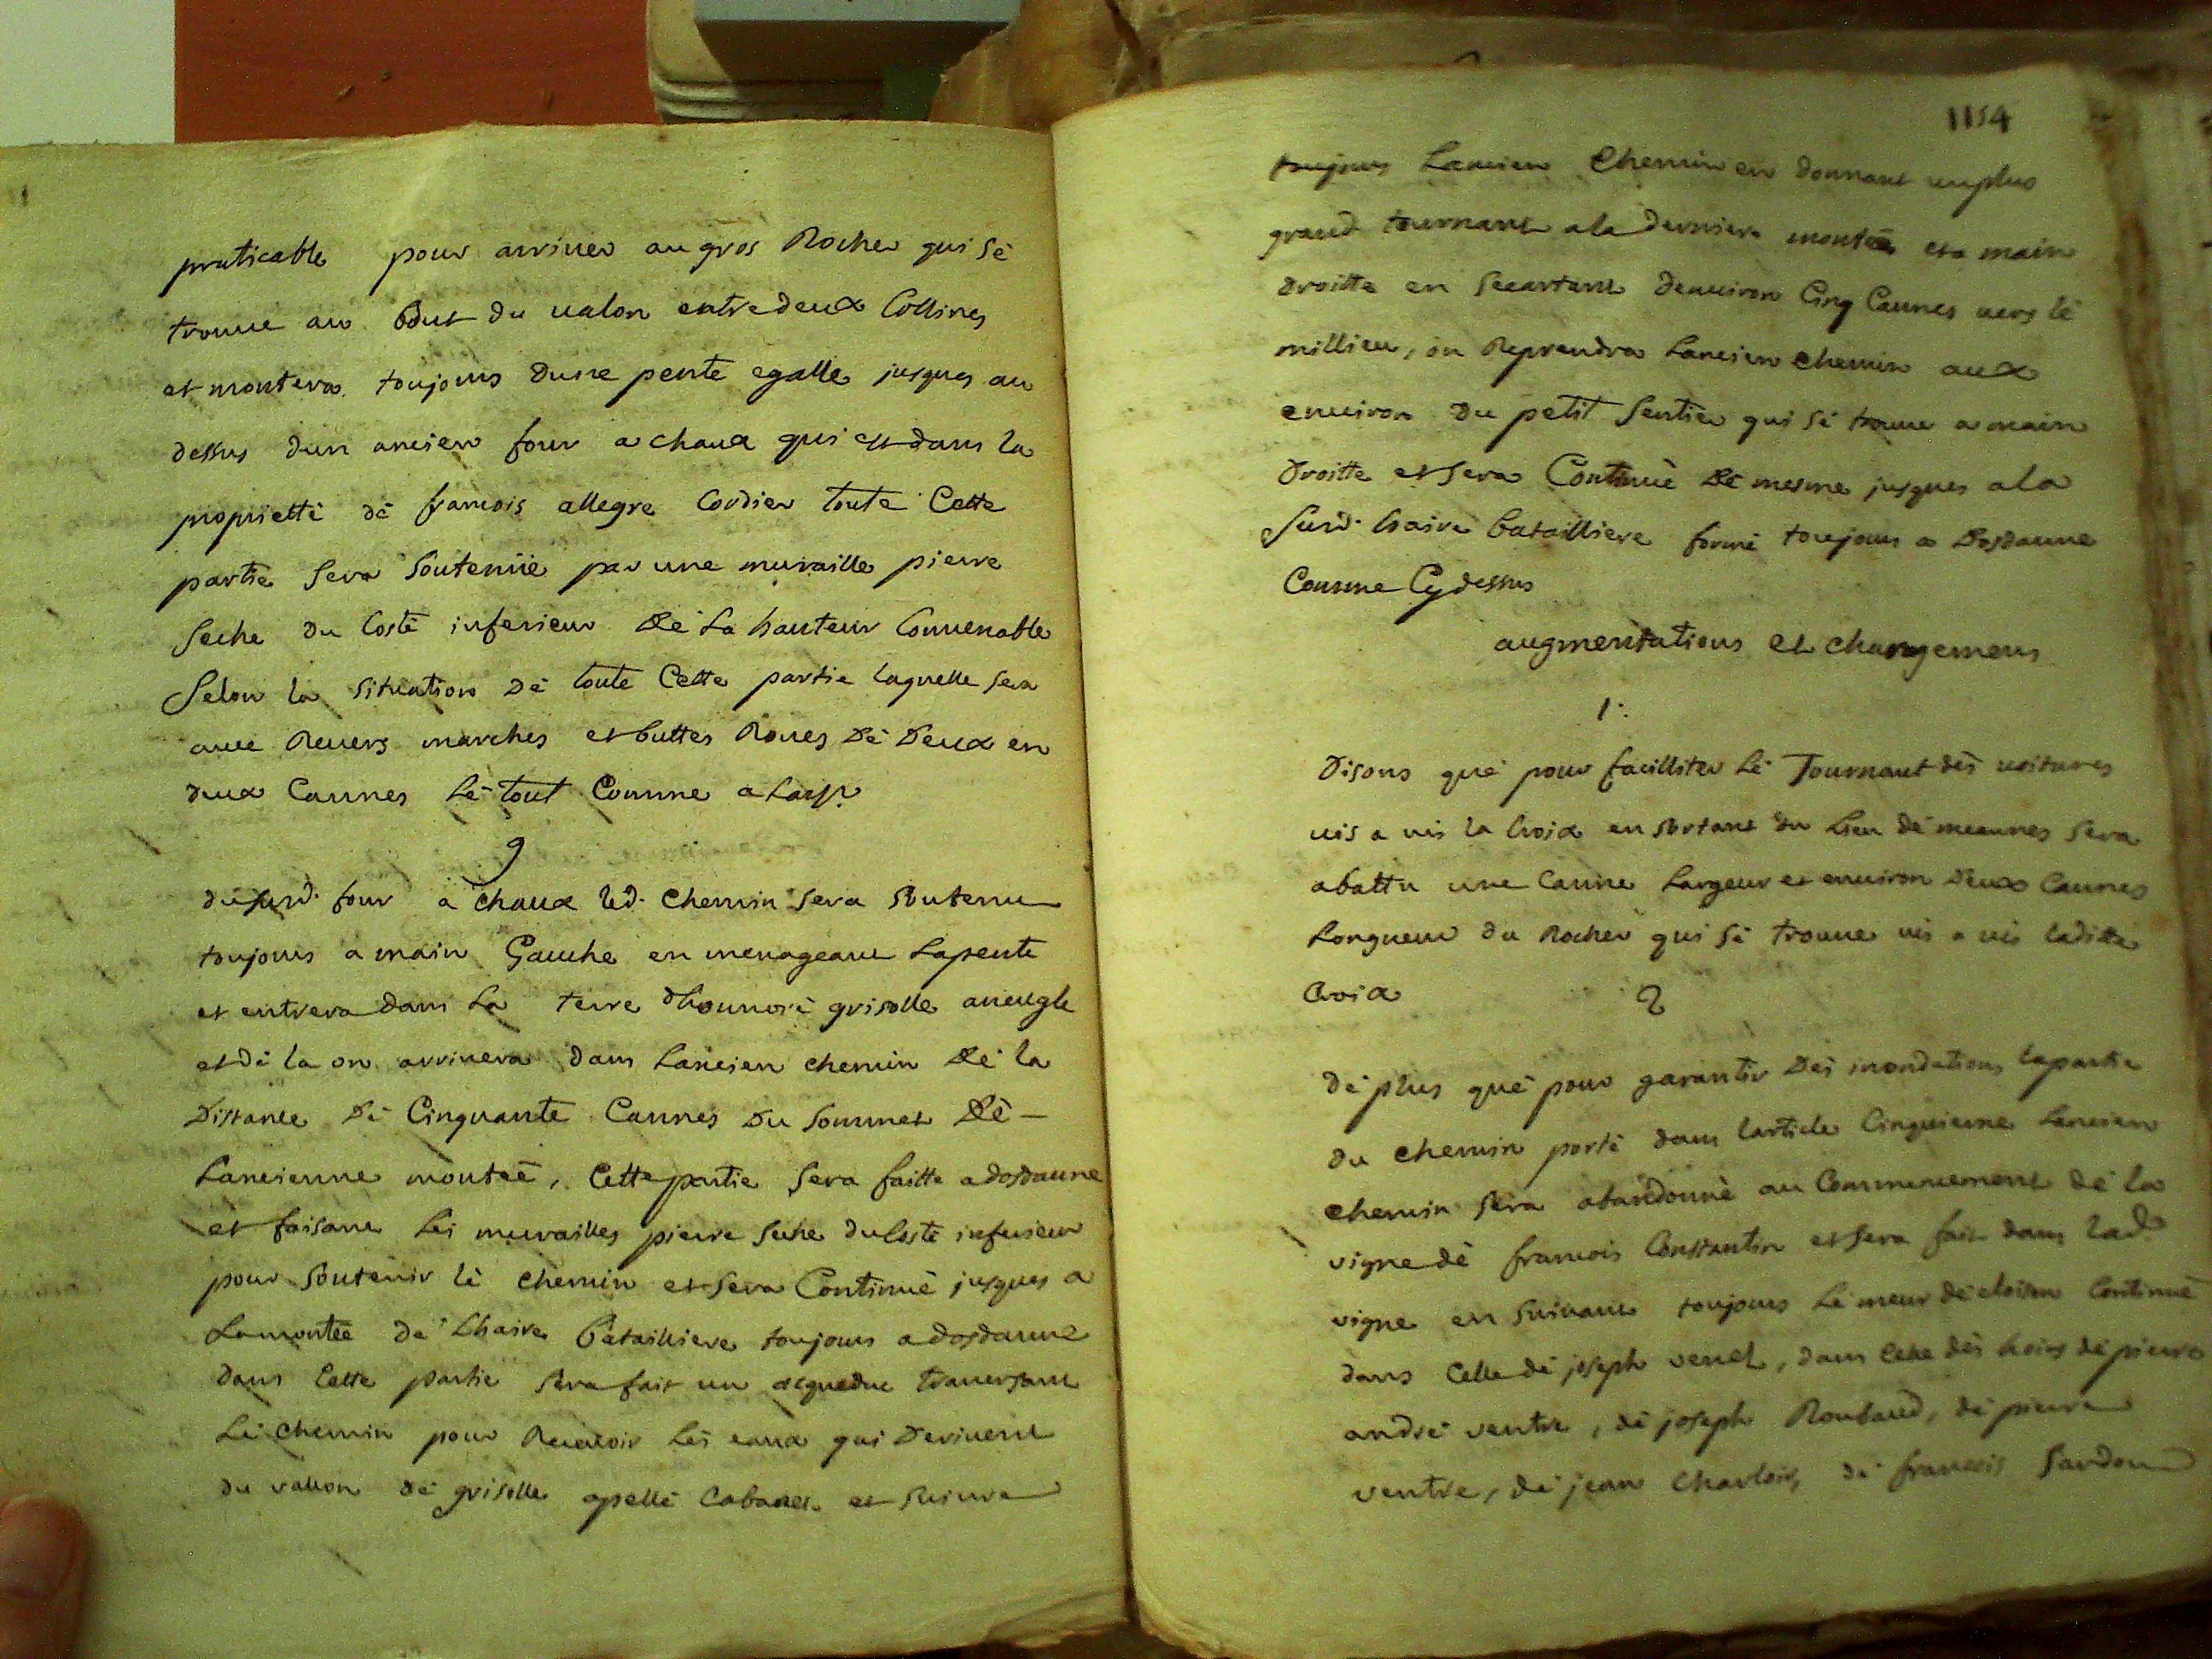 praticable pour arriver au gros Rocher qui sé
trouve au bout du valon entre deux Collines
et montera toujours dune pente egalle jusques au
dessus dun ancien four a chaux qui est dans la
proprietté dé francois allegre Cordier toute Cette
partie sera soutenüe par une muraille pierre
seche du Costé inferieur Dé La hauteur Convenable
Selon la situation Dé toute Cette partie laquelle sera
avec Revers marches et buttes Roues Dé Deux en
deux Cannes Lé tout Comme a Larp.
9
du surd. four a chaux led. chemin sera soutenu
toujours a main Gauche en menageant Lapente
et entrera dans La terre dhonnoré grisolle aveugle
et dé la on arrivera dans Lancien chemin Dé la
Distance Dé Cinquante Cannes Du sommet Dé -
Lancienne monteé, Cette partie sera faitte a dosdaune
et faisant Les murailles pierre seche du Costé inferieur
pour soutenir lé chemin et sera Continué jusques a
Lamonteé dé Lhaire Batailliere toujours a dosdaune
dans Cette partie sera fait un acqueduc traversant
Lé chemin pour Recevoir Lés eaux qui Derivent
du vallon dé grisolle apellé et suivra
1154
toujours Lancien Chemin en donnant unplus
grand tournant ala derniere monteé et a main
droitte en secartant denviron Cinq Cannes vers lé
millieu, on Reprendra Lancien chemin aux
environ Du petit sentier qui sé trouve a main
Droitte et sera Continué Dé mesme jusques ala
surd. haire batailliere formé toujours a Dosdaune
Comme Cy dessus
augmentations et changemens
1.
Disons qué pour facilliter Lé Tournant dés voitures
vis a vis la Croix en sortant du Lieu dé meounes sera
abattu une Canne Largeur et environ Deux Cannes
Longueur du Rocher qui sé trouve vis a vis laditte
Croix
2
Dé plus qué pour garantir Dés inondations lapartie
du chemin porté dans larticle Cinquieme Lancien
chemin sera abandonné au Commencement dé la
vigne dé francois Constantin et sera fait dans lad.
vigne en suivant toujours Lé meur dé cloison Continué
dans Celle dé joseph venel, dans Celle dés hoirs dé pierre
andré ventre, dé joseph Roubaud, dé pierre
ventre, dé jean Charlois, dé francois Sardou